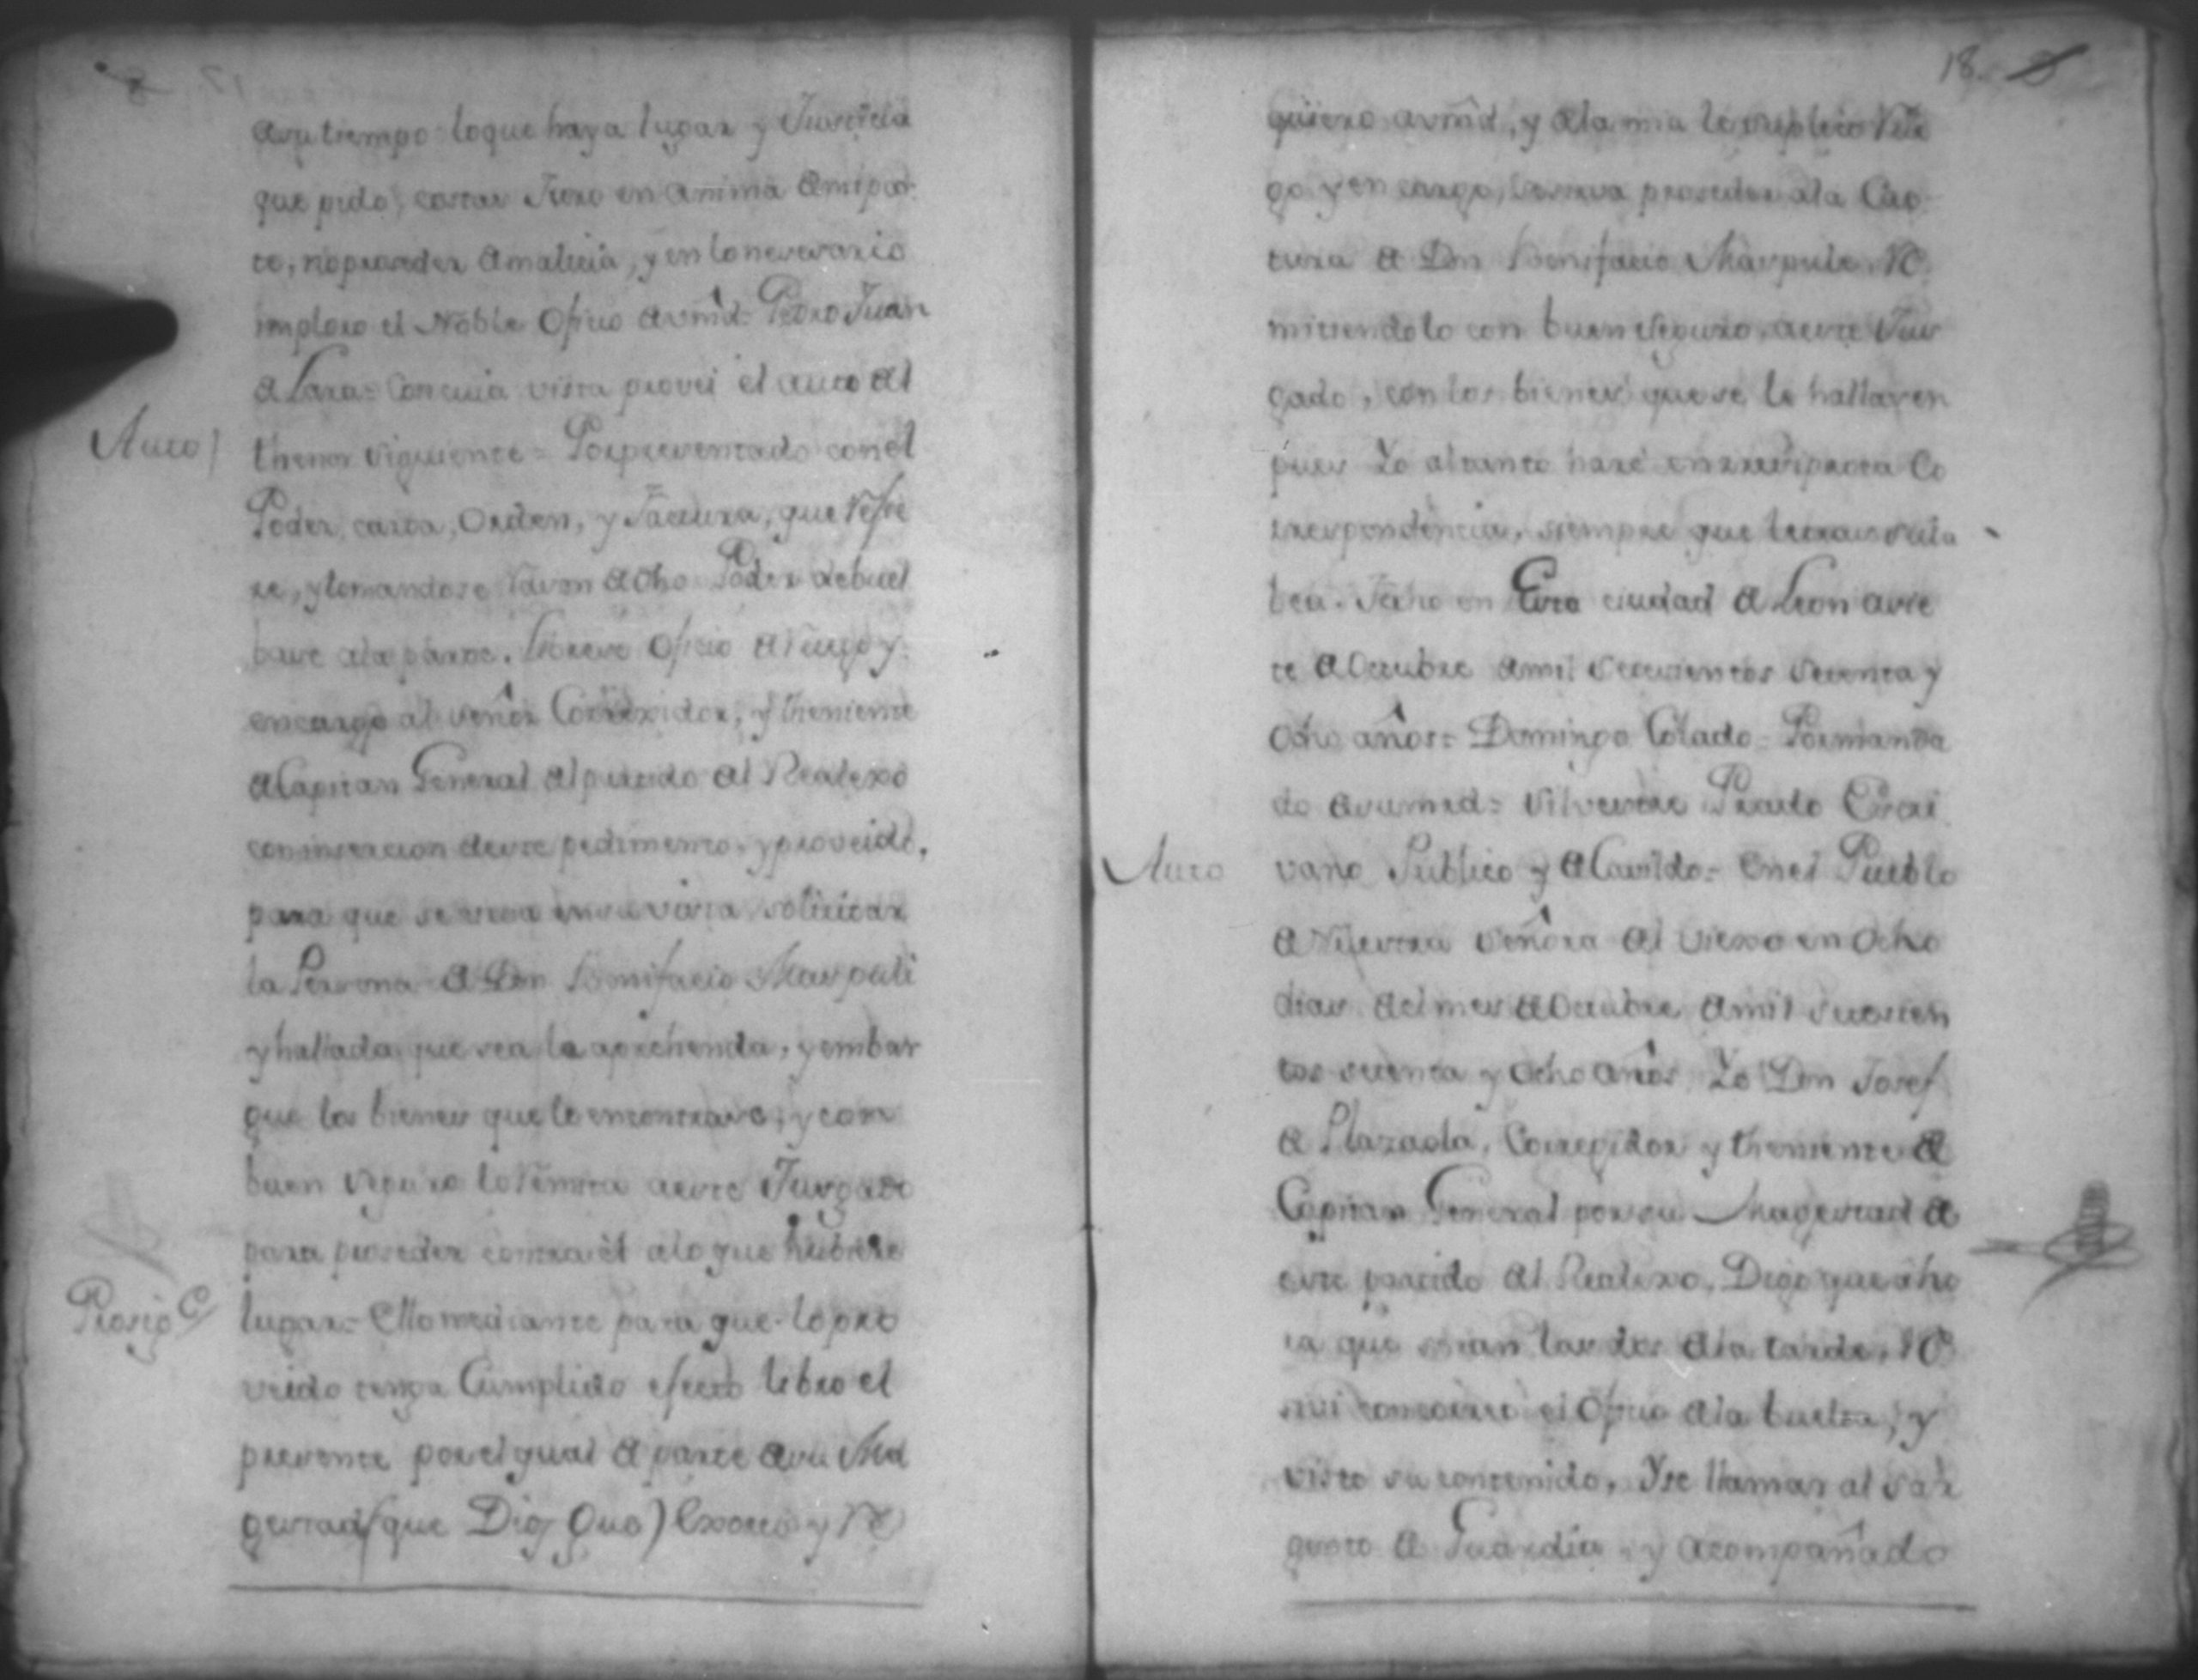 asu tiempo loque haya lugar y Justicia
que pido, costas Juro en anima de mi par
te, no proseder de malicia, y en lonesesario
imploro el Noble Oficio de vmd. Pedro Juan
de Lara = Con cuia vista provei el auto del
Auto
thenor siguiente = Por presentado con el
Poder, carta, Orden, y Factura, que refie
re, y tomandose rason de dho Poder debuel
base ala parte. Librese Oficio de ruego y
encargo al señor Correxidor, y theniente
de Capitan General del partido del Realexo
con insercion de este pedimento, y proveido,
para que se sirva en su vista solicitar
la Persona de Don Bonifacio Maspuli
y hallada que sea la aprehenda, y embar
gue los bienes que le encontrase, y con
buen seguro lo remita a este Jusgado
para proseder contra èl alo que hubiere
Prosigue
lugar = Mediante para que lo pro
veido tenga Cumplido efecto libro el
presente por el qual de parte de su Ma
gestad (que Dios Gue) exorto y re
18.
quiero a vmd, y dela mia le suplico rue
go y encargo, se sirva proseder ala Cap
tura de Don Bonifacio Maspule re
mitiendolo con buen seguro, a este Jus
gado, con los bienes que se le hallasen
pues Yo al tanto haré en reciproca Co
rrespondencia, siempre que
vea. Fecho en Esta ciudad de Leon a sie
te de Octubre de mil setecientos setenta y
Ocho años = Domingo Colado = Por manda
do de su mrd = Silvestre Prado Escri
Auto
vano Publico y de Cavildo = En el Pueblo
de Nuestra Señora del Viexo en Ocho
dias del mes de Octubre de mil setecien
tos setenta y Ocho años Yo Don Josef
de Plazaola, Corregidor y theniente de
Capitan General por su Magestad de
este partido del Realexo, Digo que aho
ra que seran las dos dela tarde, re
sevi con correo el Oficio dela buelta, y
visto su contenido, Yse llamar al Sar
gento de Guardia y acompañado